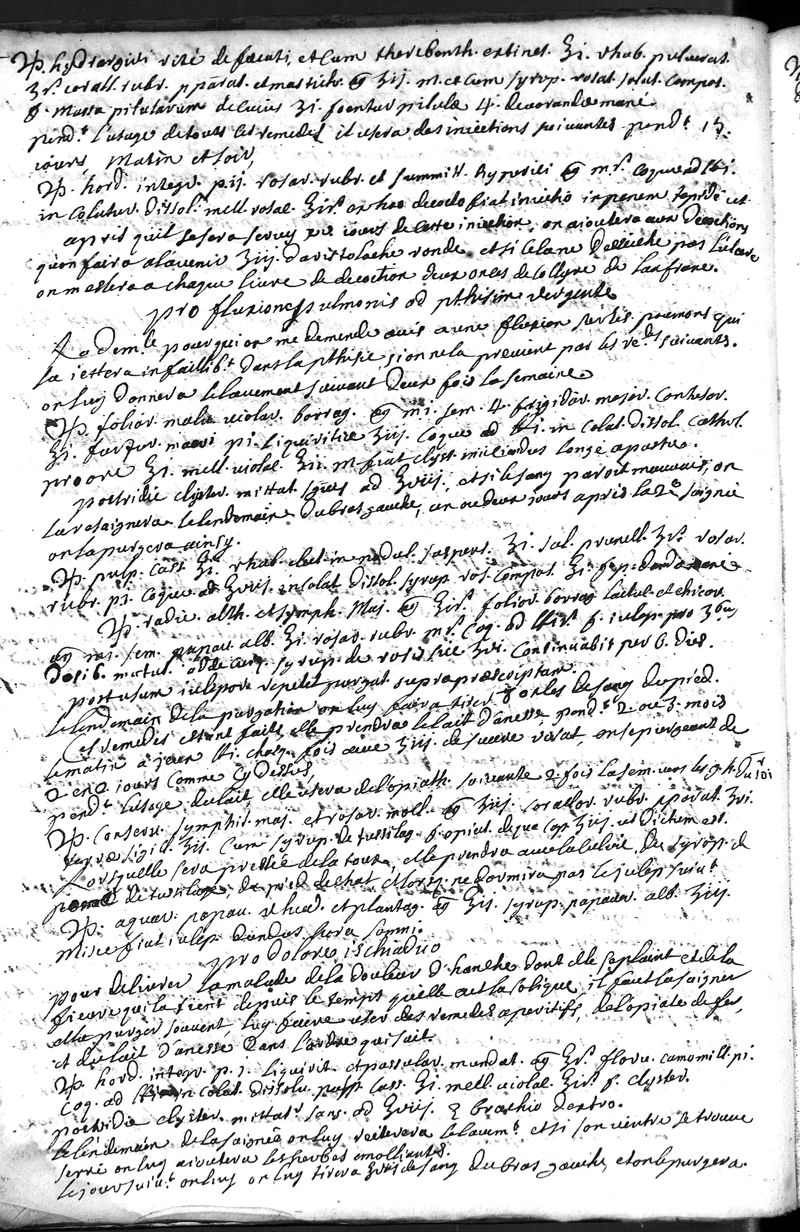 ♃. hydrargiri rite defæcati, et cum therebenth. extinct. ʒi. rhab. pulverat.
ʒſ. corall. rubr. pparat. et mastich. ā ʒij. m. et cum syrup. rosat. solut. compos.
f. massa pilularum de cuius ʒi. foentur pilulæ 4. devorandæ mane
pend.t l'usage de touts les remedes il usera des iniections suivantes pend.t 15.
iours, matin et soir,
♃. hord. integr. p.ij. rosar. rubr. et summit. hyperici ā m.ſ. coque ad ℔i.
in colatur. dissol. mell. rosat. ʒiſ. ex hoc decocto fiat iniectio in penem tepide et
apres quil se sera servy xv iours de cette iniection, on aioutera aux decoctions
quon faira a lavenir ʒij. daristoloche ronde, et si cela ne deseche pas l'ulcere
on mettera a chaque livre de decoction deux onces de collyre de lanfranc.
pro fluxione pulmonis ad pthisim vergente
La dem.le pour qui on me demende avis a une fluxion sur les poumons qui
la iettera infaillib.t dans la pthisie, si on ne la previent par les re.des suivants.
on luy donnera le lavement suivant deux fois la semaine
♃. folior. malv. violar. borrag. ā m.i. sem. 4. frigidor. major. contusor.
ʒi. furfur. macri p.i. liquiritiæ ʒiij. coque ad ℔i. in colat. dissol. cathol.
pro ore ʒi. mell. violat. ʒij. m. fiat clyst. iniiciendus longe a pastu.
postridie clyster. mittat. sanguis ad ʒviij. et si le sang paroit mauvais, on
la resaignera le lendemain du bras gauche, un ou deux iours apres la 2.e saignée
on la purgera ainsy.
♃. pulp. cass. ʒi. rhab. elect. in nodul. suspens. ʒi. sal. prunell. ʒſ. rosar.
rubr. p.i. coque ad ʒviij. in colat. dissol. syrup. ros. compos. ʒi. f. p. danda mane
♃. radic. alth. et symph. maj. ā ʒiſ. folior. borrag. lactuc. et cichor.
ā m.i. sem. papav. alb. ʒi. rosar. rubr. m.ſ. coq. ad ℔iſ. f. iulep. pro 3.bus
dosib. mictul. addeauq. syrup. de rosis sic. ʒvi. continuabit per 6. dies.
post usum iulepor. repetet purgat. supra præscriptam.
le lendemain de la purgation on luy faira tirer 8 onces de sang du pied.
Ces remedes estant faits, elle prendra le lait d'anesse, pend.t 2 ou 3 mois
le matin a jeun ℔i. chaq. fois avec ʒij. de sucre rosat, en se purgeant de
2 en 2 iours comme cy dessus
pend.t lusage du lait, elle usera de lopiath. suivante 2 fois la sem. vers les 9. h. du soir
♃. conserv. symphit. maj. et rosar. moll. ā ʒij. corallor. rubr. pparat. ʒvi.
terræ sigil. ʒij. cum syrup. de tussilag. f. opiat. de qua cap. ʒiij. ut dictum est.
Lorsquelle sera pressée de la toux, elle prendra avec la culiere, du syrop. de
de tussilage, de pied de chat et lorsq. ne dormira pas le julep suiv.t
♃. aquar. papav. rhead. et plantag. ā ʒij. syrup. papaver. alb. ʒiij.
misce fiat iulep. dandus hora somni.
pro dolore ischiadico
pour delivrer la malade de la douleur d'hanche dont elle se plaint et de la
fievre qui la tient depuis le temps quelle a et la colique, il faut la saigner
et la purger souvent luy faire user des remedes aperitifs, de lopiate de fer,
et du lait d'anesse dans lordre qui suit.
♃. hord. integr. p.j. liquirit. et passular. mundat. ā ʒſ. flor. camomill. p.i.
coq. ad ℔i. in colat. dissolv. pulp. cass. ʒi. mell. violat. ʒiſ. f. clyster.
postridie clyster. mittat.r sang. ad ʒviij. e brachio dextro.
le lendemain de la saignée on luy reiterera le lavem.t et si son ventre se trouve
serré on luy aioutera les herbes emollientes.
le jour suiv.t on luy on luy tirera ʒviij de sang du bras gauche, et on le purgera.